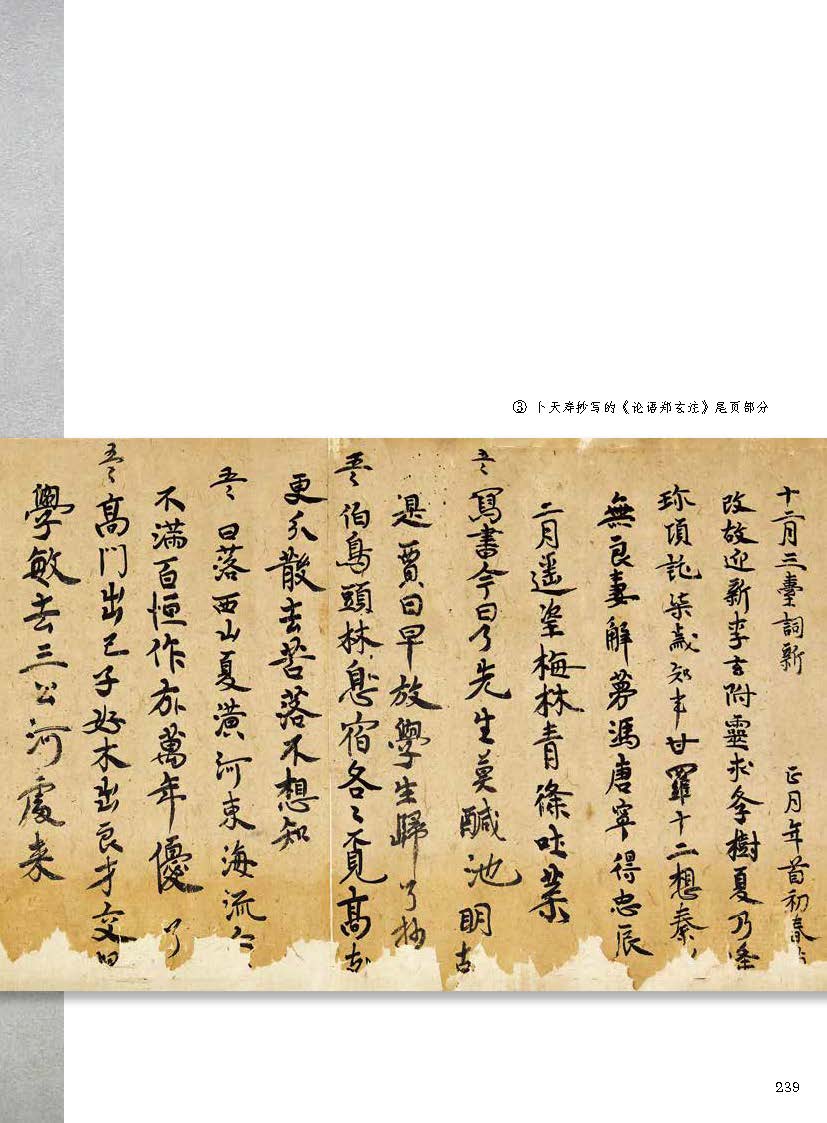 ③ 卜天寿抄写的《论语郑玄注》尾页部分
十二月三臺詞新 正月年首初春
改故迎新李玄附靈求學樹夏乃逢
珎項託柒歲知事甘羅十二想秦
無良妻解夢馮唐寧得忠辰
二月遥望梅林青條吐葉
五〻寫書今日了先生莫醎池明
是賈日早放學生歸 了抄
五〻伯鳥頭林息宿各〻覓高
更分散去苦落不想知
五〻日落西山夏潢河東海流人
不滿百恒作万萬年優 了
五〻高門出己子好木出良才交口
學敏去三公河處来
239